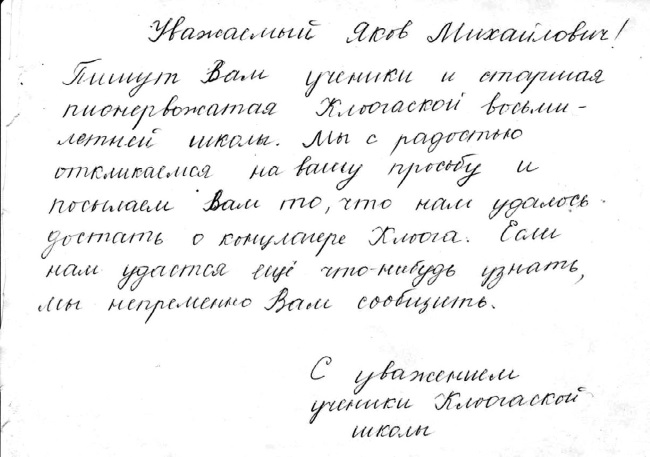 Уважаемый Яков Михайлович!
Пишут Вам ученики и старшая
пионервожатая Клоогаской восьми-
летней школы. Мы с радостью
откликаемся на вашу просьбу и
посылаем Вам то, что нам удалось
достать о концлагере Клоога. Если
нам удастся ещё что-нибудь узнать,
мы непременно Вам сообщить.
С уважением
ученики Клоогаской
школы